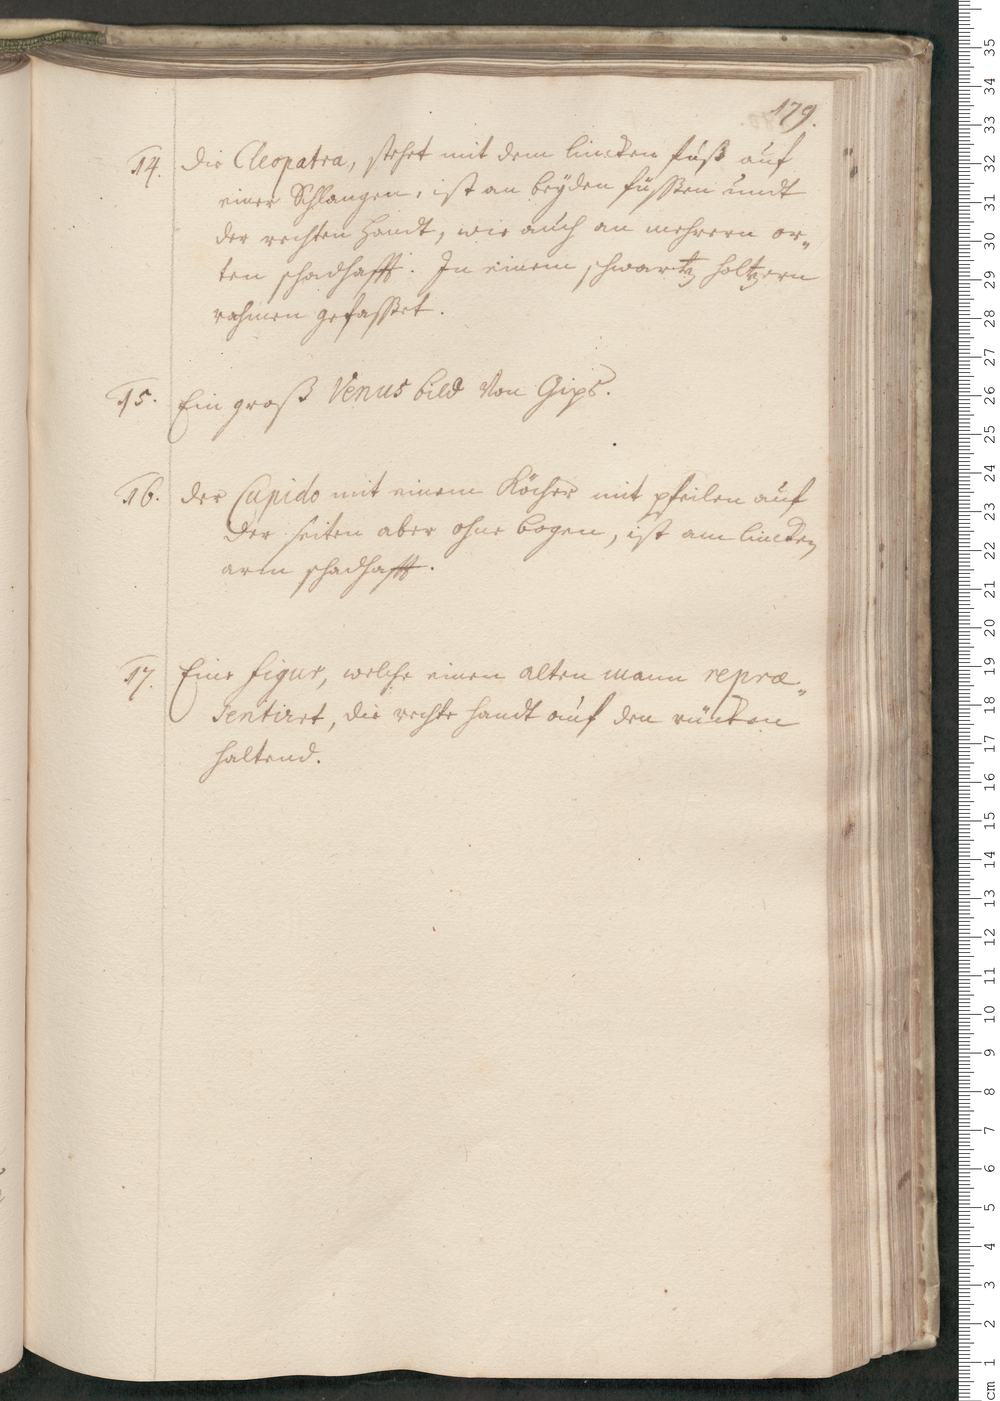 179.
14. Die Cleopatra, stehet mit dem lincken fuß auf
einer Schlangen, ist an beyden füssen undt
der rechten Handt, wie auch an mehrern or„
ten schadhafft. In einem schwartz holtzern
rahmen gefasset.
15. Ein groß Venus bild von Gips.
16. der Cupido mit einem Köcher mit pfeilen auf
der seiten aber ohne bogen, ist am lincken
arm schadhafft.
17. Eine figur, welche einen alten mann repræ„
sentiret, die rechte handt auf den rücken
haltend.
35
34
33
32
31
30
29
28
27
26
25
24
23
22
21
20
19
18
17
16
15
14
13
12
11
10
9
8
7
6
5
4
3
2
1
cm